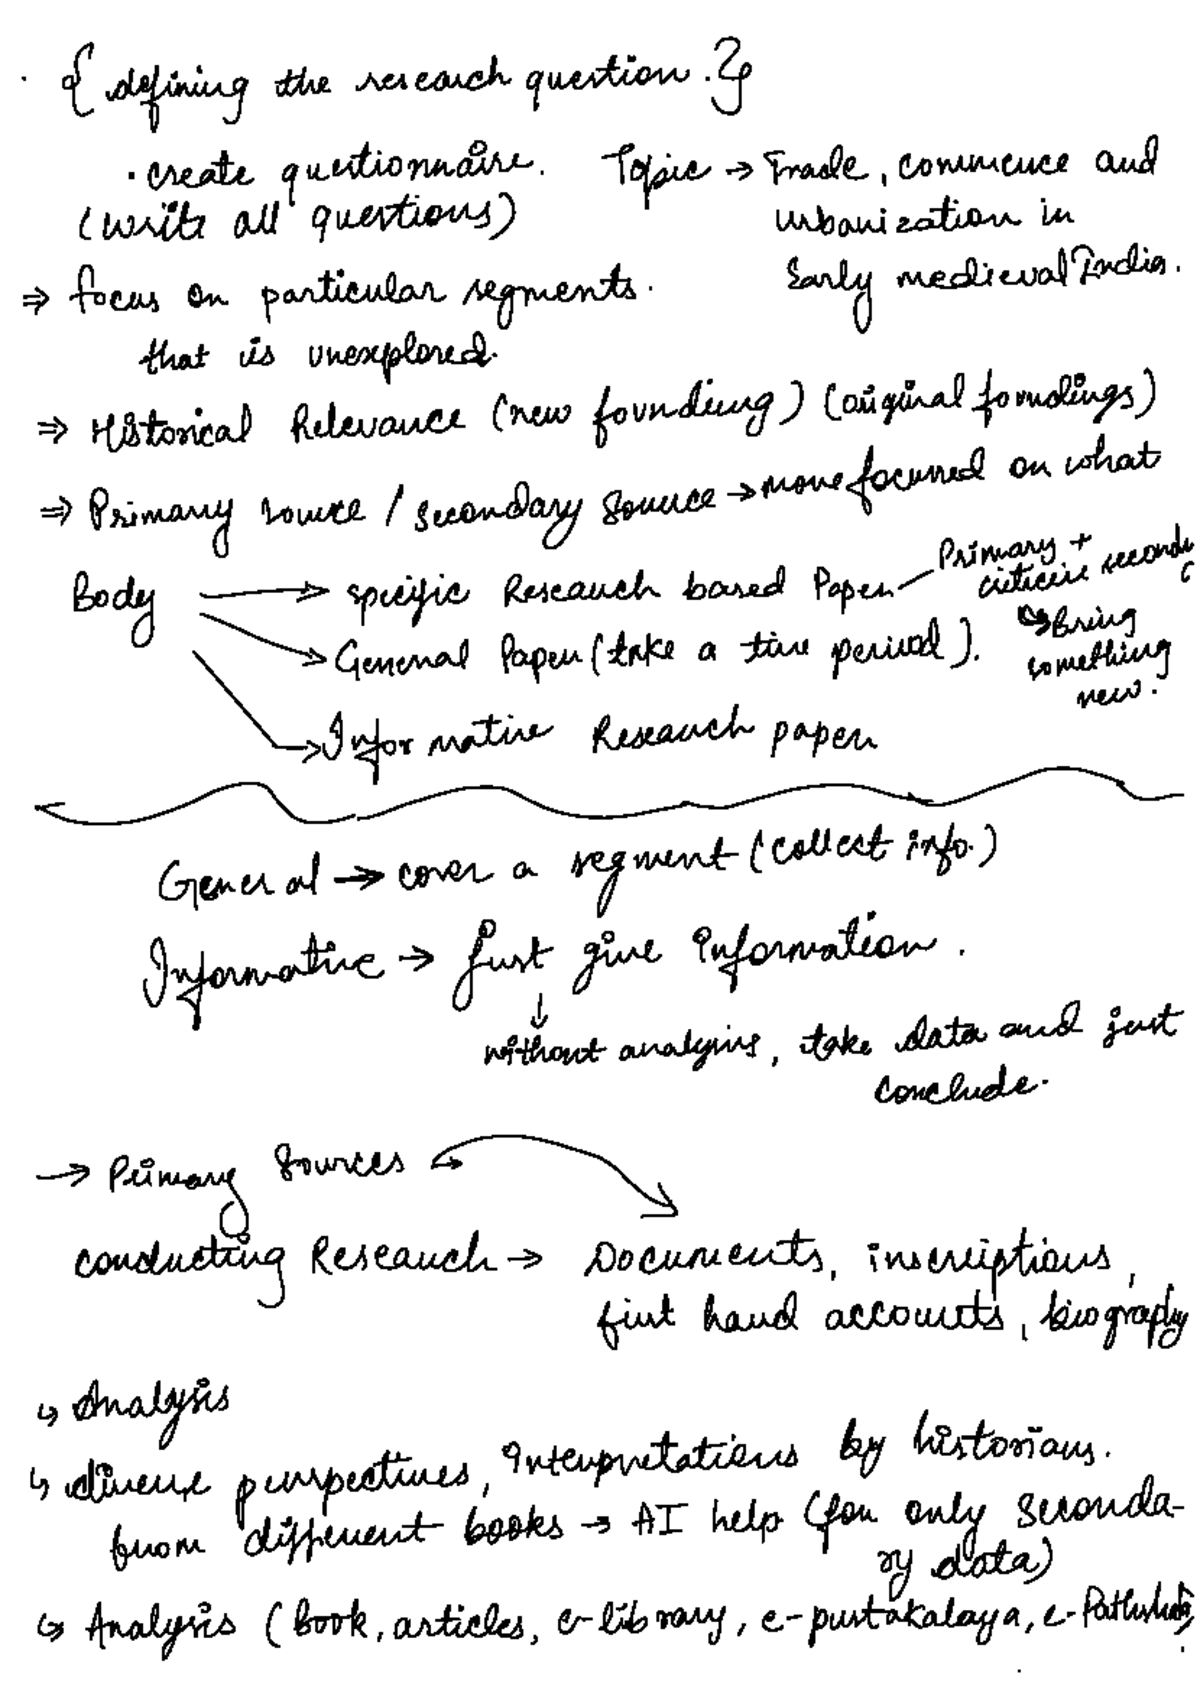 { defining the research question.? }
• create questionnaire.
(write all questions)
Topic → Trade, commerce and
urbanization in
Early medieval India.
⇒ focus on particular segments.
that is unexplored.
⇒ Historical Relevance (new founding) (original foundings)
⇒ Primary source / secondary source → more focused on what
Body → specific Research based Paper — Primary +
criticize
↳ Bring
something
new.
→ General Paper (take a time period).
→ Informative Research paper
General → cover a segment (collect info.)
Informative → Just give information.
↓
without analysis, take data and just
conclude.
→ Primary Sources →
conducting Research → Documents, inscriptions,
first hand accounts, biography
↳ Analysis
↳ diverse perspectives, interpretations by historians.
from different books → AI help (for only seconda-
ry data)
↳ Analysis (book, articles, e-library, e-pustakalaya,